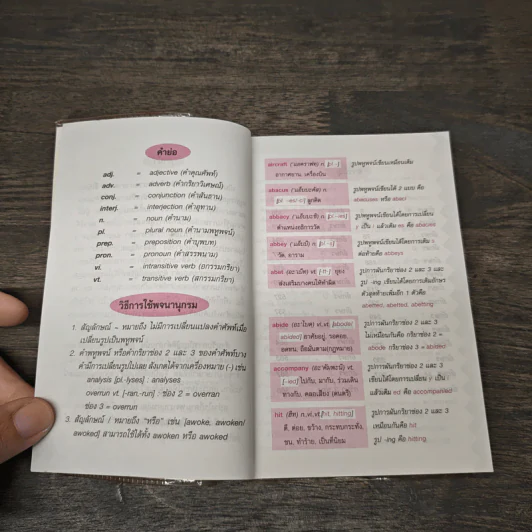 คำย่อ
adj. = adjective (คำคุณศัพท์)
adv. = adverb (คำกริยาวิเศษณ์)
conj. = conjunction (คำสันธาน)
interj. = interjection (คำอุทาน)
n. = noun (คำนาม)
pl. = plural noun (คำนามพหูพจน์)
prep. = preposition (คำบุพบท)
pron. = pronoun (คำสรรพนาม)
vi. = intransitive verb (อกรรมกริยา)
vt. = transitive verb (สกรรมกริยา)
วิธีการใช้พจนานุกรม
1. สัญลักษณ์ - หมายถึง ไม่มีการเปลี่ยนแปลงคำศัพท์เมื่อ
เปลี่ยนรูปเป็นพหูพจน์
2. คำพหูพจน์ หรือคำกริยาช่อง 2 และ 3 ของคำศัพท์บาง
คำมีการเปลี่ยนรูปไปเลย สังเกตได้จากเครื่องหมาย (-) เช่น
analysis [pl. -lyses] : analyses
overrun vt. [-ran,-run] : ช่อง 2 = overran
ช่อง 3 = overrun
3. สัญลักษณ์ / หมายถึง "หรือ" เช่น [awoke, awoken/
awoked] สามารถใช้ได้ทั้ง awoken หรือ awoked
aircraft n. [pl. -]
อากาศยาน, เครื่องบิน
รูปพหูพจน์เขียนเหมือนเดิม
abacus n.
[pl. -es/-ci] ลูกคิด
รูปพหูพจน์เขียนได้ 2 แบบ คือ
abacuses หรือ abaci
abbacy n. [pl. -ies]
ตำแหน่งอธิการวัด
รูปพหูพจน์เขียนได้โดยการเปลี่ยน
y เป็น i แล้วเติม es คือ abbacies
abbey n. [pl. -s]
วัด, อาราม
รูปพหูพจน์เขียนได้โดยการเติม s
ต่อท้ายคือ abbeys
abet vt.
ส่งเสริมบางคนให้ทำผิด
รูปการผันกริยาช่อง 2 และ 3 และ
รูป -ing เขียนได้โดยการเติมอักษร
ตัวสุดท้ายเพิ่มอีก 1 ตัวคือ
abetted, abetted, abetting
abode vi.,vt. [abode/
abided] อาศัยอยู่, รอคอย,
อดทน,
รูปการผันกริยาช่อง 2 และ 3
ไม่เหมือนกันคือ กริยาช่อง 2 =
abode กริยาช่อง 3 = abided
accompany vt.
[-ied] ไปกับ, มากับ, ร่วมเดิน
ทางกับ, คลอเสียง (ดนตรี)
รูปการผันกริยาช่อง 2 และ 3
เขียนได้โดยการเปลี่ยน y เป็น i
แล้วเติม ed คือ accompanied
hit (ฮิท) n.,vi.,vt. [hit, hitting]
ตี, ต่อย, ขว้าง, กระทบกระทั่ง,
ชน, ทำร้าย, เป็นที่นิยม
รูปการผันกริยาช่อง 2 และ 3
เหมือนกันคือ hit
รูป -ing คือ hitting